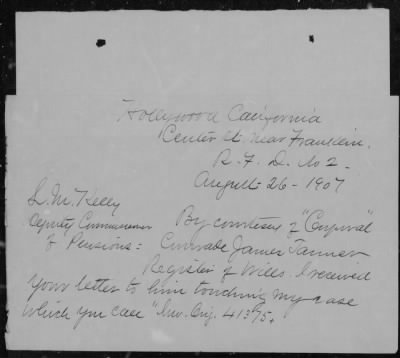 Hollywood California
Center St. Near Franklin.
R. F. D. No 2.
August 26 - 1907
L. M. Kelly
Deputy Commissioner By courtesy of "Corporal"
of Pensions = Comrade James Tanner
Register of Wills. I received
your letter to him touching my case
which you call "Inv. Orig. 41375.